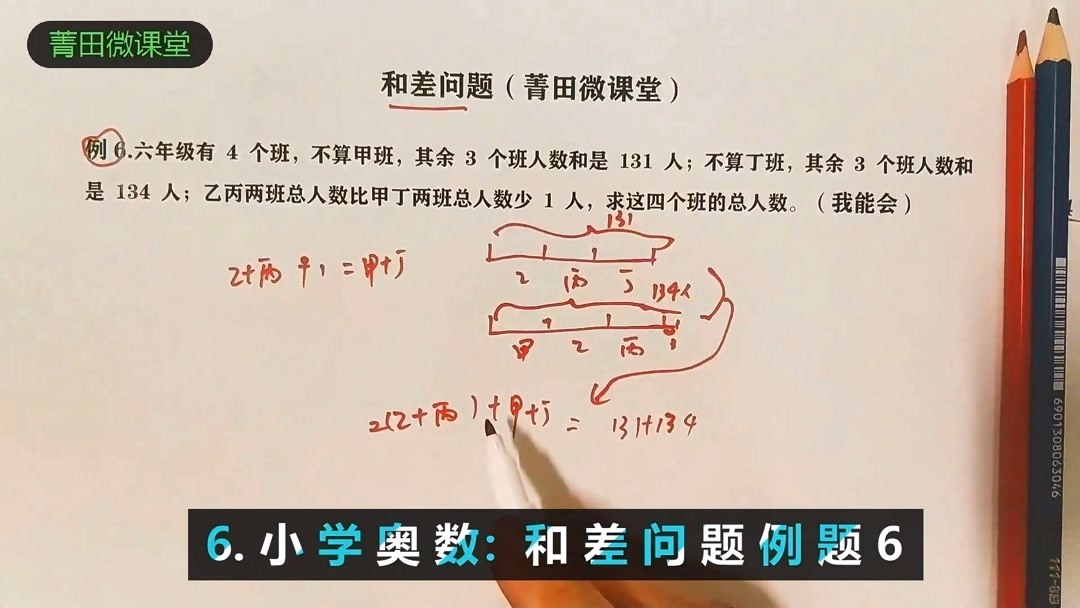 菁田微课堂
和差问题（菁田微课堂）
例 6.六年级有 4 个班，不算甲班，其余 3 个班人数和是 131 人；不算丁班，其余 3 个班人数和
是 134 人；乙丙两班总人数比甲丁两班总人数少 1 人，求这四个班的总人数。（我能会）
131
乙+丙+1=甲+丁
乙 丙 丁
134人
甲 乙 丙
2(乙+丙)+甲+丁= 131+134
6.小学奥数：和差问题例题6
6901308063046